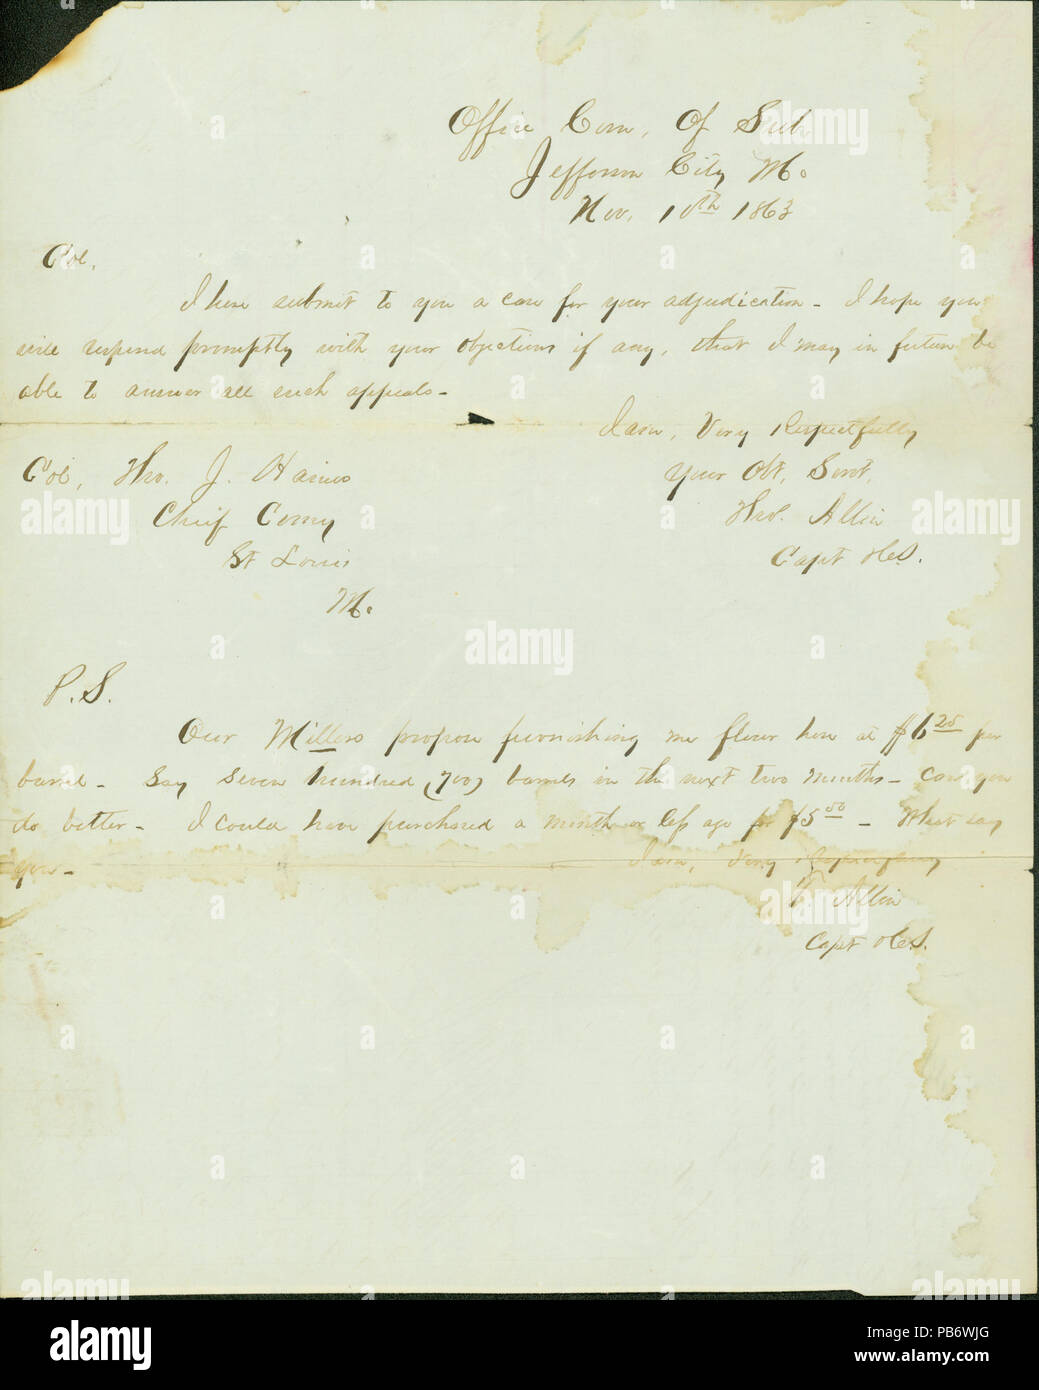 Office Com. Of Sub.
Jefferson City Mo
Nov. 10th 1863
Col,
I here submit to you a case for your adjudication - I hope you
will respond promptly with your objections if any, that I may in future be
able to answer all such appeals -
I am, Very Respectfully
Your Obt, Servt,
Tho. Allin
Capt &C.S.
Col, Tho. J. Haines
Chief Comy
St Louis
Mo
P.S.
Our Millers propose furnishing me flour here at $6 25 per
barrel - Say Seven hundred (700) barrels in the next two months - can you
do better - I could have purchased a month or less ago for $5 50 - What say
you -
I am, Very Respectfully
T. Allin
Capt &C.S.
alamy
a
alamy
Image ID: PB6WJG
www.alamy.com